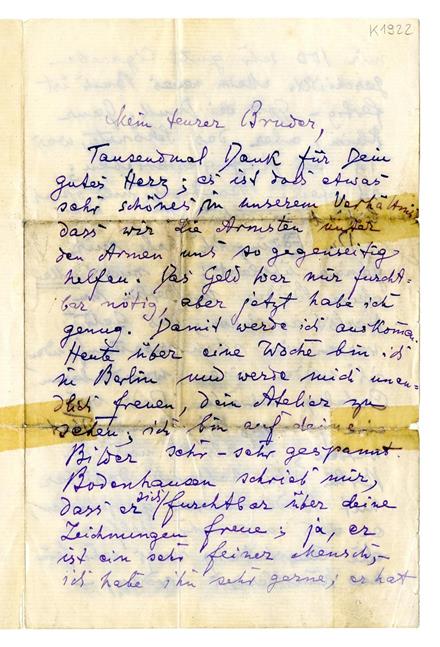 K1922
Mein teurer Bruder,
Tausendmal Dank für Dein
gutes Herz; es ist doch etwas
sehr schönes in unserem Verhältnis
dass wir die Armsten unter
den Armen uns so gegenseitig
helfen. Das Geld war mir furcht-
bar nötig, aber jetzt habe ich
genug. Damit werde ich auskomm.
Heute über eine Woche bin ich
in Berlin und werde mich unen-
dlich freuen, dein Atelier zu
sehen; ich bin auf deine
Bilder sehr - sehr gespannt.
Bodenhausen schrieb mir,
dass er sich furchtbar über deine
Zeichnungen freue; ja, er
ist ein sehr feiner Mensch,-
ich habe ihn sehr gerne; er hat